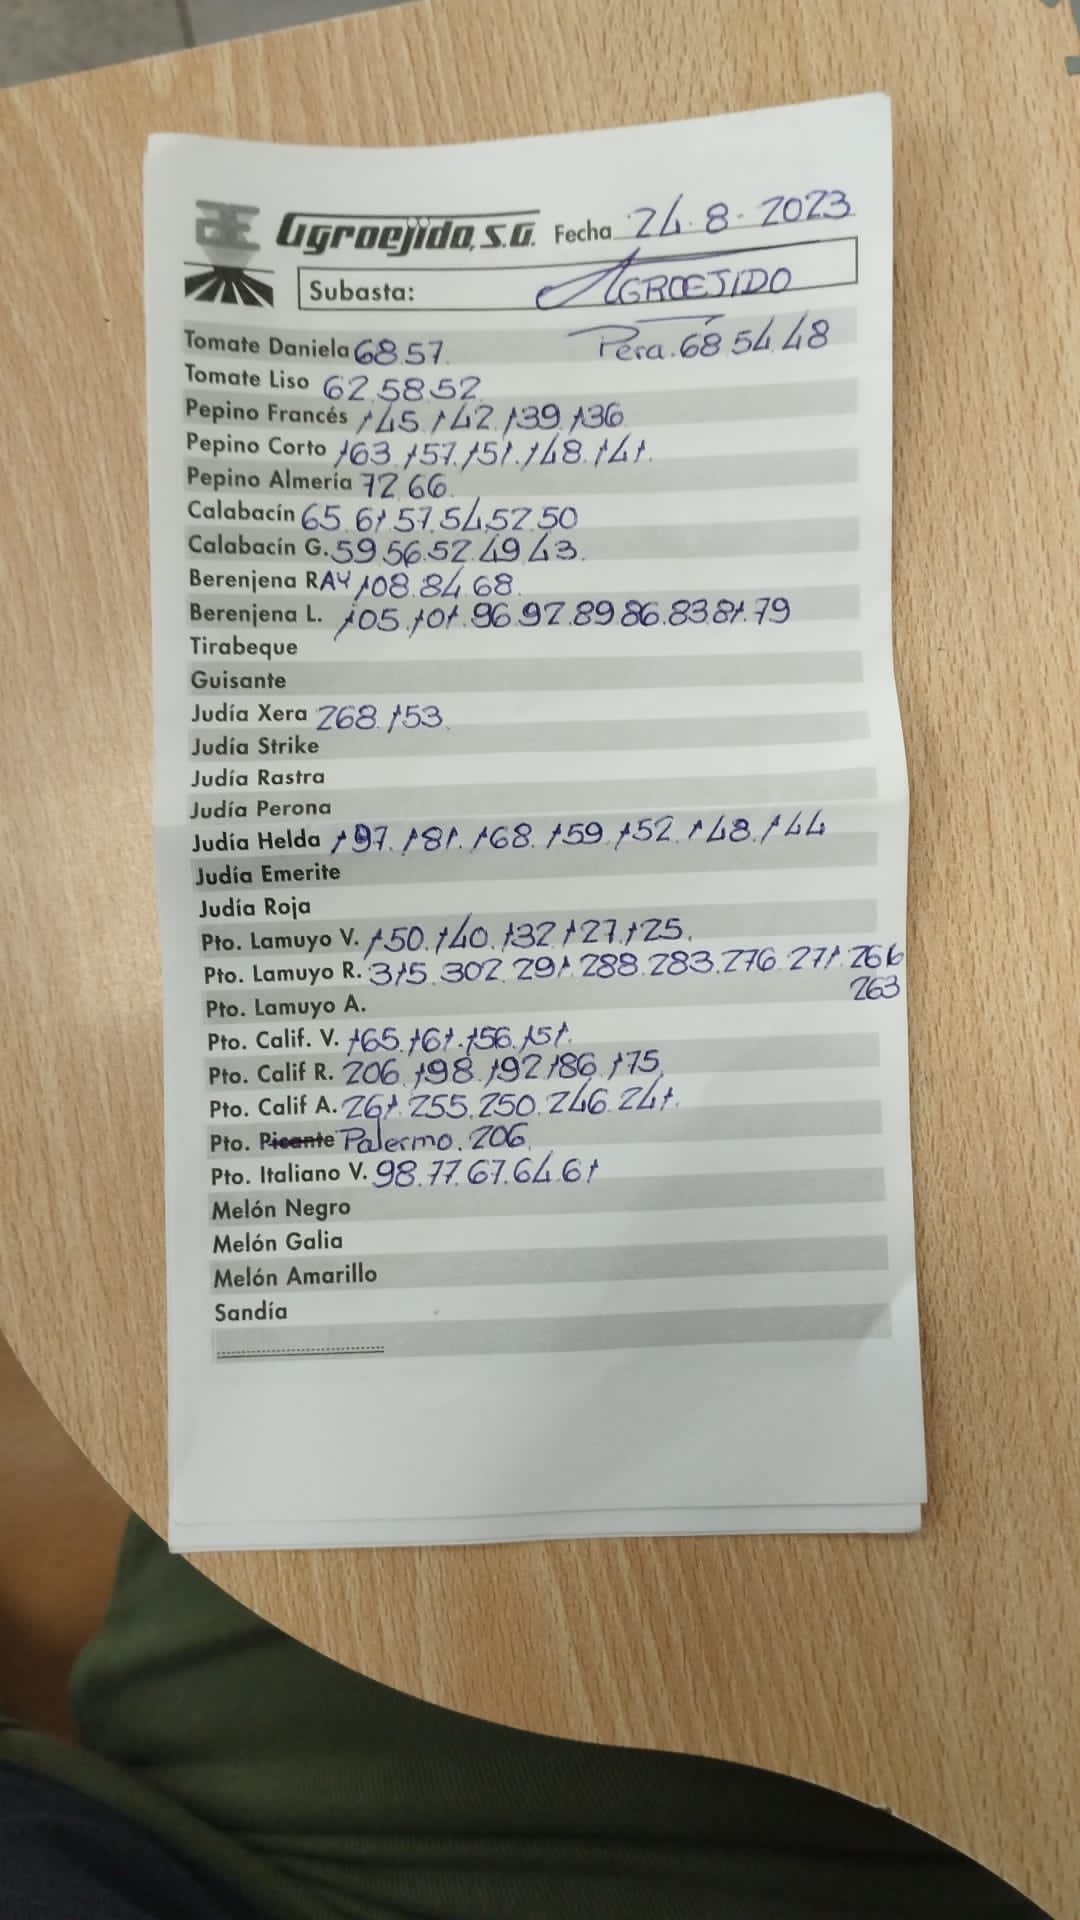 AE Agroejido, S.A. Fecha 24.8.2023
Subasta: AGROEJIDO
Tomate Daniela 68.57. Pera.68.54.48
Tomate Liso 62.58.52
Pepino Francés 145.142.139.136
Pepino Corto 163.157.151.148.141.
Pepino Almería 72.66.
Calabacín 65.61.57.54.52.50
Calabacín G. 59.56.52.49.43.
Berenjena RAY 108.84.68.
Berenjena L. 105.101.96.92.89.86.83.81.79
Tirabeque
Guisante
Judía Xera 268.153.
Judía Strike
Judía Rastra
Judía Perona
Judía Helda 197.181.168.159.152.148.144
Judía Emerite
Judía Roja
Pto. Lamuyo V. 150.140.132.127.125.
Pto. Lamuyo R. 315.302.291.288.283.276.271.266
263
Pto. Lamuyo A.
Pto. Calif. V. 165.161.156.151.
Pto. Calif R. 206.198.192.186.175
Pto. Calif A. 261.255.250.246.241.
Pto. Picante Palermo.206.
Pto. Italiano V. 98.77.67.64.61
Melón Negro
Melón Galia
Melón Amarillo
Sandía